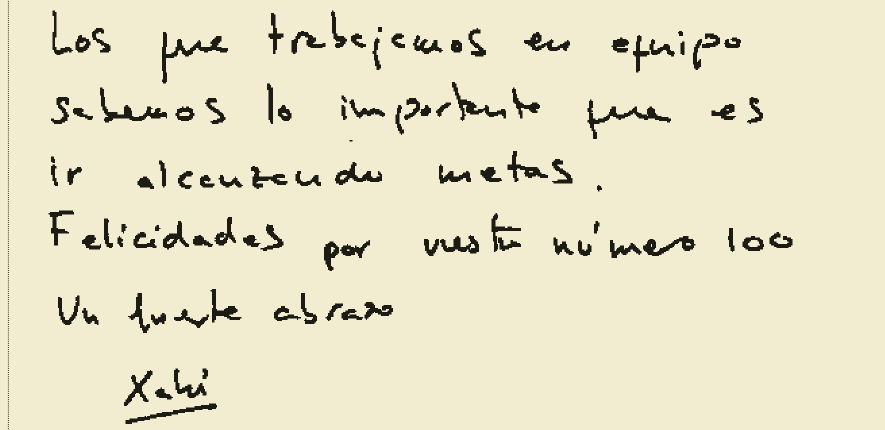 Los que trabajamos en equipo
sabemos lo importante que es
ir alcanzando metas.
Felicidades por vuestro número 100
Un fuerte abrazo
Xabi